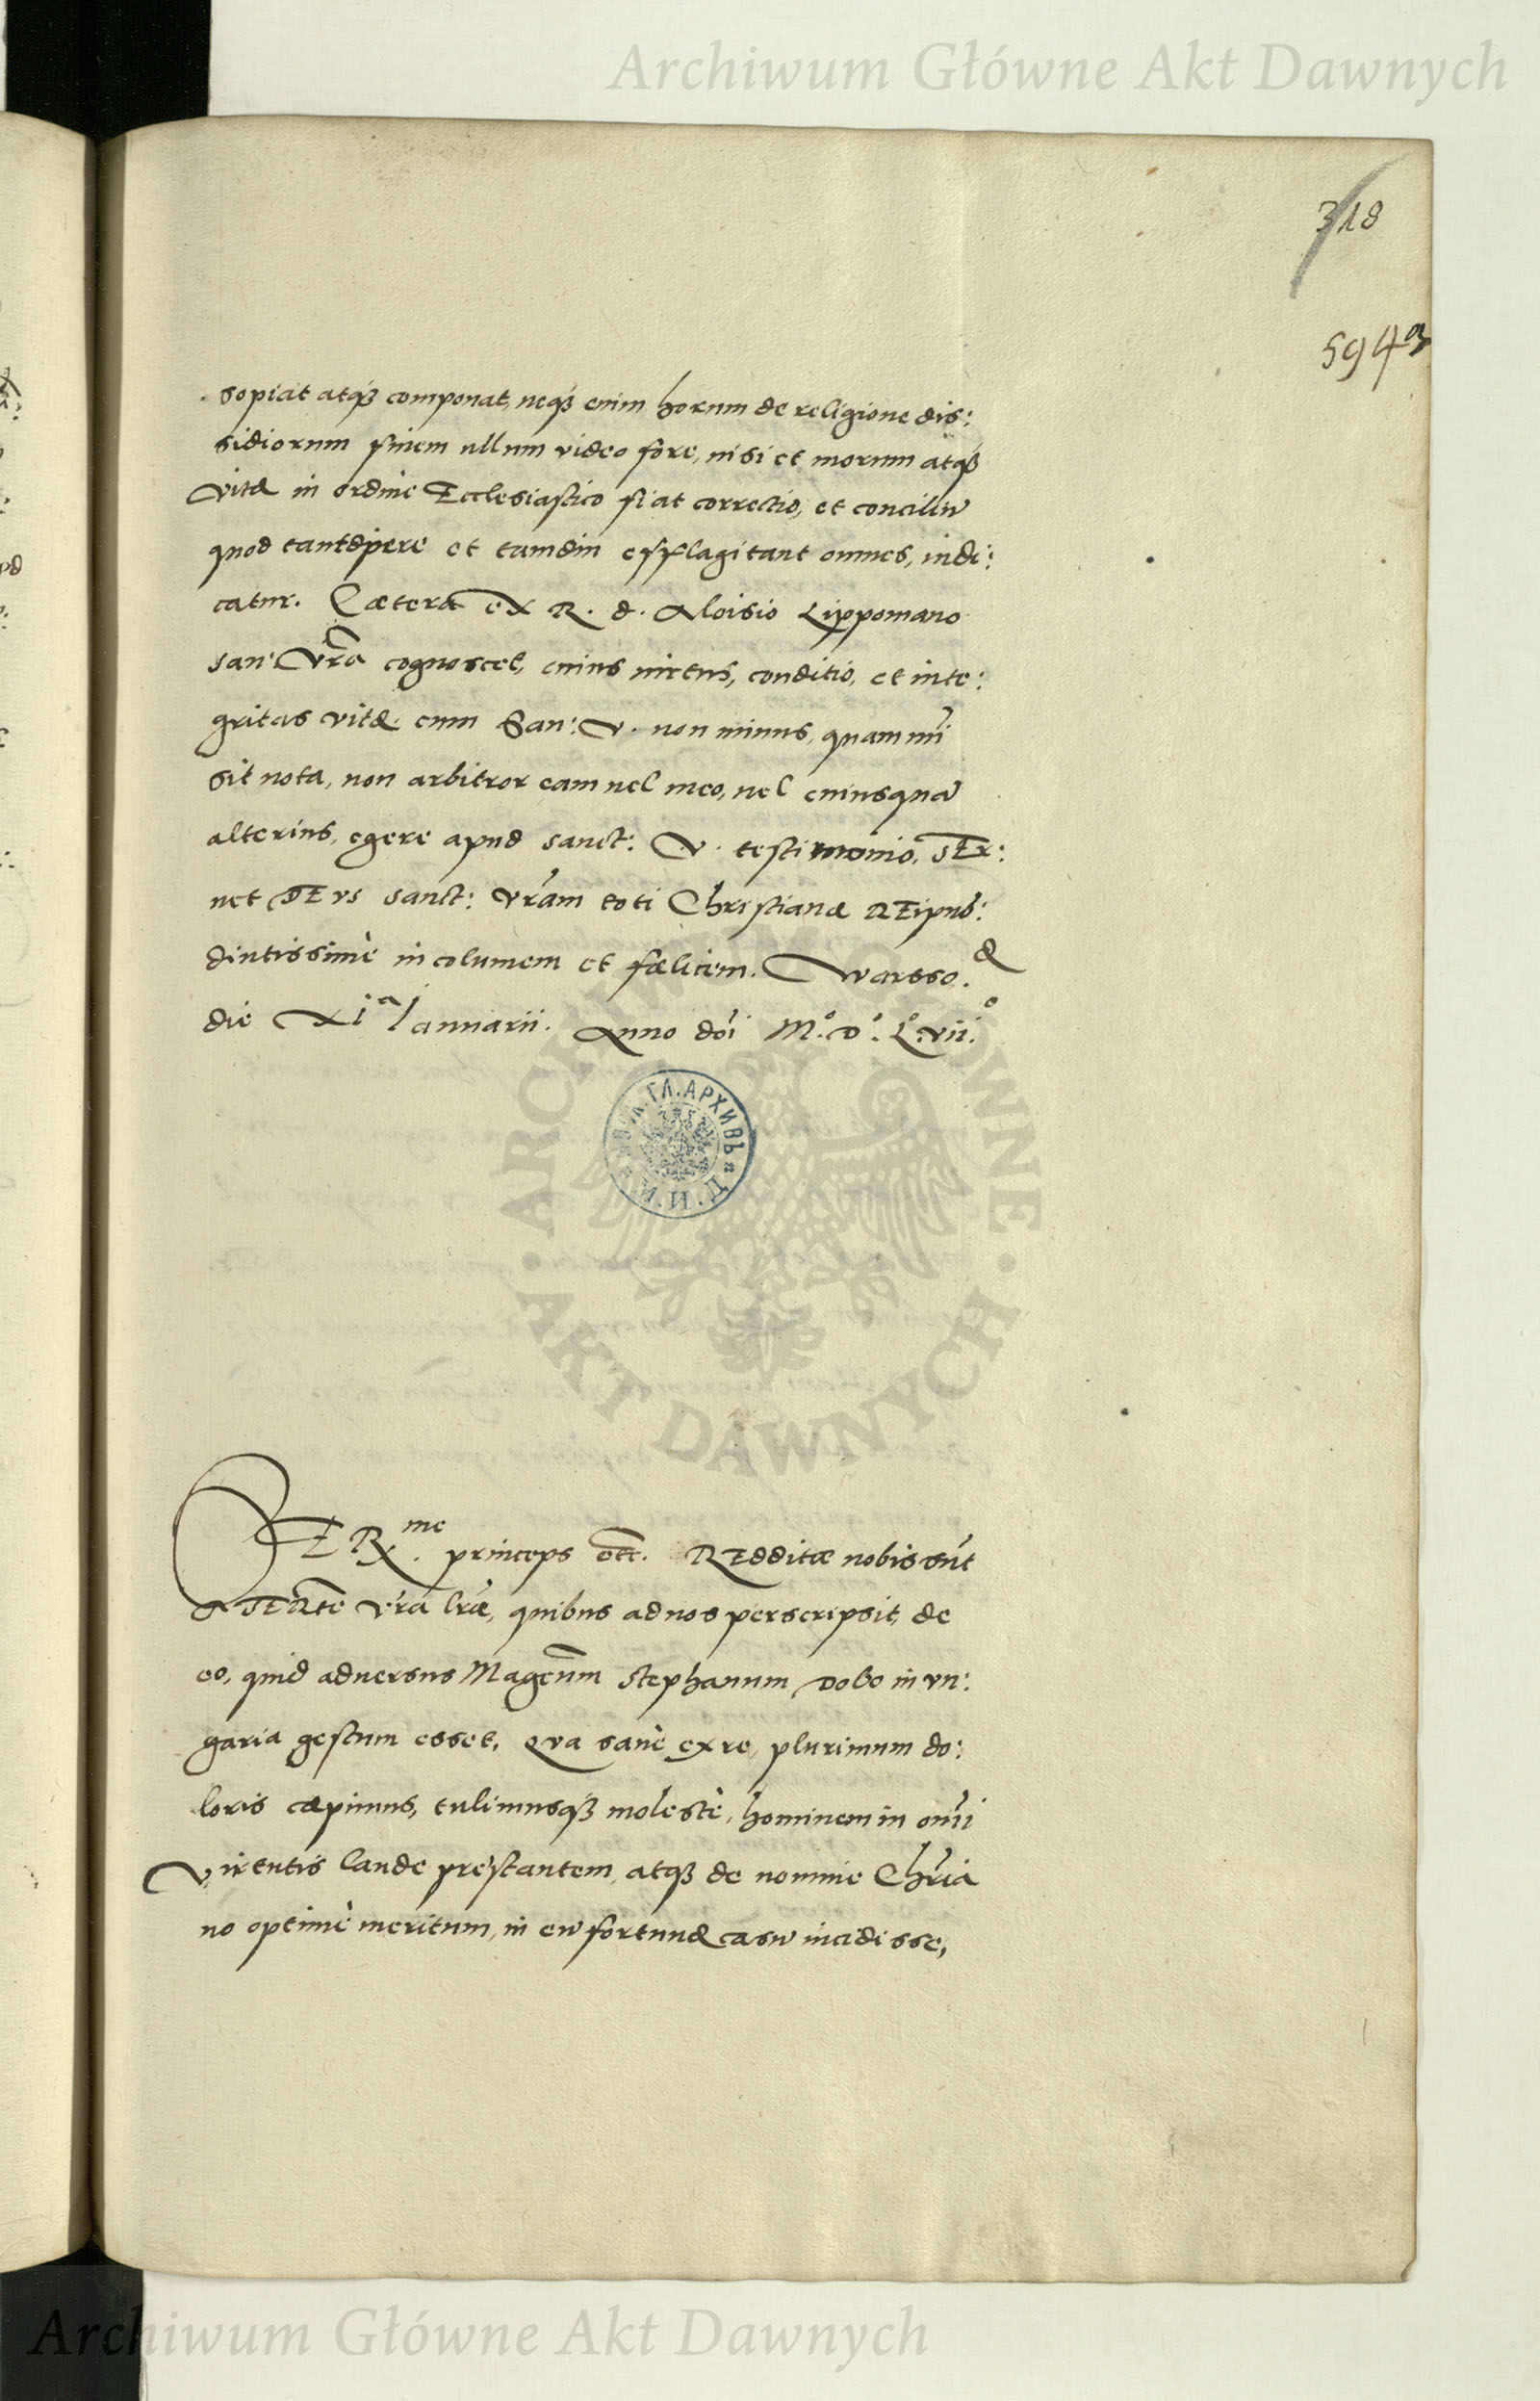 Archiwum Główne Akt Dawnych
318
594
sopiat atqꝫ componat, neqꝫ enim horum de religione dis:
sidiorum finem ullum video fore, nisi et morum atqꝫ
vitæ in ordine Ecclesiastico fiat correctio, et conciliū
quod tantopere et tamdiu efflagitant omnes, indi:
catur. Cætera ex R. d. Aloisio Lippomano
san: Vr̃a cognoscet, cuius uirtus, conditio, et inte:
gritas vitæ cum San: V. non minus, quam mi
sit nota, non arbitror eam uel meo, uel cuiusquā
alterius, egere apud sanct: V. testimonio. SEr:
uet DEus sanct: Vr̃am toti Christianæ REipub:
diutissimè incolumem et fælicem. Warsso.æ
die XIa Ianuarii. Anno doĩ Mo. Do. Lo. viio.
АРХИВЪ
ARCHIWUM GŁÓWNE · AKT DAWNYCH ·
SERme. princeps etc. REdditæ nobis sūt
a SERte Vr̃a lr̃æ, quibus ad nos perscripsit, de
eo, quid aduersus Magcum Stephanum Dobo in vn:
garia gestum esset, Qua sanè ex re, plurimum do:
loris cæpimus, tulimusqꝫ molestè, hominem in om̃i
Virtutis laude præstantem, atqꝫ de nomine Chr̃ia
no optimè meritum, in eū fortunæ casū incidisse,
Archiwum Główne Akt Dawnych